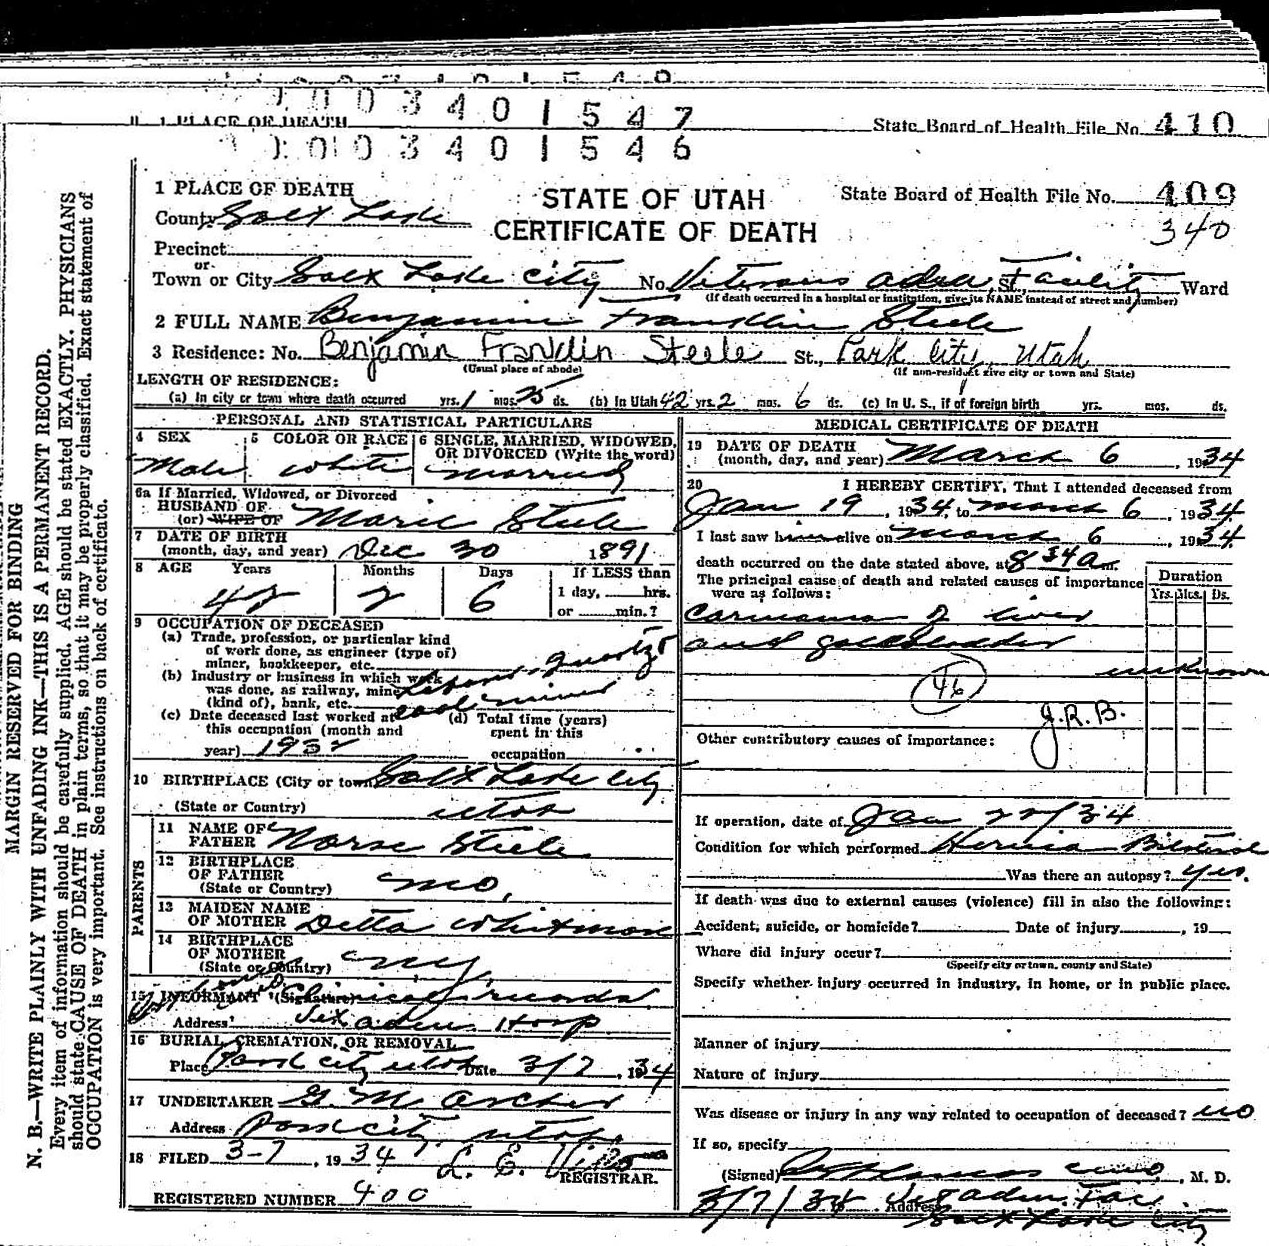 0 0 3 4 0 1 5 4 8
0 0 3 4 0 1 5 4 7
1 PLACE OF DEATH State Board of Health File No. 410
0 0 3 4 0 1 5 4 6
1 PLACE OF DEATH STATE OF UTAH State Board of Health File No. 409
County Salt Lake CERTIFICATE OF DEATH 340
Precinct
or
Town or City Salt Lake City No. Veterans Adm. Facility St., Ward
(If death occurred in a hospital or institution, give its NAME instead of street and number)
2 FULL NAME Benjamin Franklin Steele
3 Residence: No. Benjamin Franklin Steele St., Park City, Utah
(Usual place of abode) (If non-resident give city or town and State)
LENGTH OF RESIDENCE:
(a) In city or town where death occurred yrs. 1 mos. 25 ds. (b) In Utah 42 yrs. 2 mos. 6 ds. (c) In U. S., if of foreign birth yrs. mos. ds.
PERSONAL AND STATISTICAL PARTICULARS
4 SEX 5 COLOR OR RACE 6 SINGLE, MARRIED, WIDOWED, OR DIVORCED (Write the word)
Male White Married
6a If Married, Widowed, or Divorced
HUSBAND OF
(or) WIFE OF Marie Steele
7 DATE OF BIRTH
(month, day, and year) Dec 30 1891
8 AGE Years Months Days If LESS than
42 2 6 1 day, hrs.
or min.?
9 OCCUPATION OF DECEASED
(a) Trade, profession, or particular kind
of work done, as engineer (type of)
miner, bookkeeper, etc. quartz
(b) Industry or business in which work
was done, as railway, mine
(kind of), bank, etc.
coal miner
(c) Date deceased last worked at (d) Total time (years)
this occupation (month and spent in this
year) 1932 occupation
10 BIRTHPLACE (City or town) Salt Lake City
(State or Country) Utah
PARENTS
11 NAME OF
FATHER Steele
12 BIRTHPLACE
OF FATHER
(State or Country) Mo.
13 MAIDEN NAME
OF MOTHER Detta Whitmore
14 BIRTHPLACE
OF MOTHER
(State or Country) N.Y.
15 INFORMANT (Signature) Clinical records
Address Vet adm Hosp
16 BURIAL, CREMATION, OR REMOVAL
Place Park City Utah Date 3/7, 1934
17 UNDERTAKER G. M. Archer
Address Park City, Utah
18 FILED 3-7, 1934 L. E.
REGISTRAR.
REGISTERED NUMBER 400
MEDICAL CERTIFICATE OF DEATH
19 DATE OF DEATH
(month, day, and year) March 6, 1934
20 I HEREBY CERTIFY, That I attended deceased from
Jan 19, 1934, to March 6, 1934.
I last saw him alive on March 6, 1934.
death occurred on the date stated above, at 8 34 a m.
The principal cause of death and related causes of importance
were as follows:
Duration
Yrs. Mos. Ds.
Carcinoma of liver
and gallbladder
unknown
46
J.R.B.
Other contributory causes of importance:
If operation, date of Jan 22/34
Condition for which performed Hernia Bilateral
Was there an autopsy? yes.
If death was due to external causes (violence) fill in also the following:
Accident, suicide, or homicide? Date of injury , 19
Where did injury occur?
(Specify city or town, county and State)
Specify whether injury occurred in industry, in home, or in public place.
Manner of injury
Nature of injury
Was disease or injury in any way related to occupation of deceased? no
If so, specify
(Signed) , M. D.
3/7/34 Address Vet adm. Fac.
Salt Lake City
MARGIN RESERVED FOR BINDING
N. B.—WRITE PLAINLY WITH UNFADING INK—THIS IS A PERMANENT RECORD.
Every item of information should be carefully supplied. AGE should be stated EXACTLY. PHYSICIANS
should state CAUSE OF DEATH in plain terms, so that it may be properly classified. Exact statement of
OCCUPATION is very important. See instructions on back of certificate.